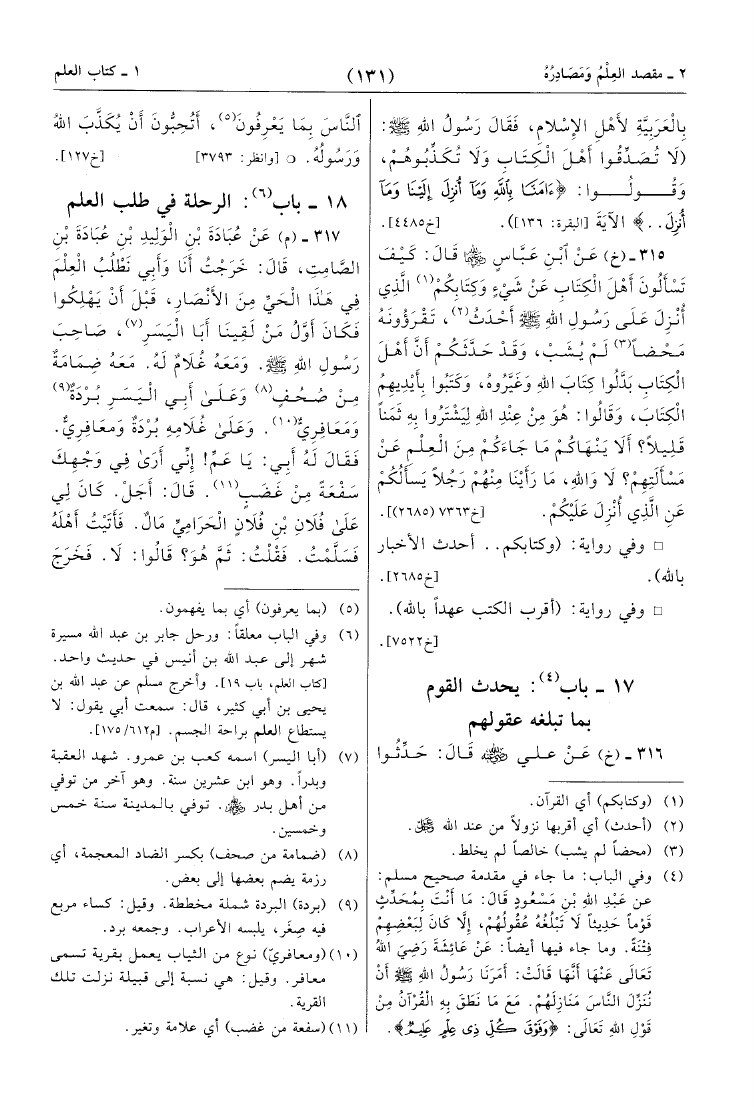 ٢ ـ مقصد العِلْمُ وَمَصَادِرُهُ
(١٣١)
١ ـ كتاب العلم
بِالْعَرَبِيَّةِ لأَهْلِ الإِسْلَامِ، فَقَالَ رَسُولُ اللهِ ﷺ:
(لَا تُصَدِّقُوا أَهْلَ الْكِتَابِ وَلَا تُكَذِّبُوهُمْ،
وَقُــولُــوا: ﴿ءَامَنَّا بِاللَّهِ وَمَآ أُنزِلَ إِلَيْنَا وَمَآ
أُنزِلَ..﴾ الآيَةَ [البقرة: ١٣٦]). [خ٤٤٨٥].
٣١٥ ـ (خ) عَنْ ابْنِ عَبَّاسٍ ﷺ قَالَ: كَيْفَ
تَسْأَلُونَ أَهْلَ الْكِتَابِ عَنْ شَيْءٍ وَكِتَابِكُمْ(١) الَّذِي
أُنْزِلَ عَلَى رَسُولِ اللهِ ﷺ أَحْدَثُ(٢)، تَقْرَؤُونَهُ
مَحْضاً(٣) لَمْ يُشَبْ، وَقَدْ حَدَّثَكُمْ أَنَّ أَهْلَ
الْكِتَابِ بَدَّلُوا كِتَابَ اللهِ وَغَيَّرُوهُ، وَكَتَبُوا بِأَيْدِيهِمُ
الْكِتَابَ، وَقَالُوا: هُوَ مِنْ عِنْدِ اللهِ لِيَشْتَرُوا بِهِ ثَمَناً
قَلِيلاً؟ أَلَا يَنْهَاكُمْ مَا جَاءَكُمْ مِنَ الْعِلْمِ عَنْ
مَسْأَلَتِهِمْ؟ لَا وَاللهِ، مَا رَأَيْنَا مِنْهُمْ رَجُلاً يَسْأَلُكُمْ
عَنِ الَّذِي أُنْزِلَ عَلَيْكُمْ. [خ٧٣٦٣ (٢٦٨٥)].
□ وفي رواية: (وكتابكم.. أحدث الأخبار
بالله). [خ٢٦٨٥].
□ وفي رواية: (أقرب الكتب عهداً بالله).
[خ٧٥٢٢].
١٧ ـ باب(٤): يحدث القوم
بما تبلغه عقولهم
٣١٦ ـ (خ) عَنْ عـلـي ﷺ قَالَ: حَدِّثُوا
(١) (وكتابكم) أي القرآن.
(٢) (أحدث) أي أقربها نزولاً من عند الله ﷻ.
(٣) (محضاً لم يشب) خالصاً لم يخلط.
(٤) وفي الباب: ما جاء في مقدمة صحيح مسلم:
عن عَبْدِ اللهِ بْنِ مَسْعُودٍ قَالَ: مَا أَنْتَ بِمُحَدِّثٍ
قَوْماً حَدِيثاً لَا تَبْلُغُهُ عُقُولُهُمْ، إِلَّا كَانَ لِبَعْضِهِمْ
فِتْنَةً. وما جاء فيها أيضاً: عَنْ عَائِشَةَ رَضِيَ اللهُ
تَعَالَى عَنْهَا أَنَّهَا قَالَتْ: أَمَرَنَا رَسُولُ اللهِ ﷺ أَنْ
نُنَزِّلَ النَّاسَ مَنَازِلَهُمْ. مَعَ مَا نَطَقَ بِهِ الْقُرْآنُ مِنْ
قَوْلِ اللهِ تَعَالَى: ﴿وَفَوْقَ كُلِّ ذِى عِلْمٍ عَلِيمٌ﴾.
النَّاسَ بِمَا يَعْرِفُونَ(٥)، أَتُحِبُّونَ أَنْ يُكَذَّبَ اللهُ
وَرَسُولُهُ. ○ [وانظر: ٣٧٩٣] [خ١٢٧].
١٨ ـ باب(٦): الرحلة في طلب العلم
٣١٧ ـ (م) عَنْ عُبَادَةَ بْنِ الْوَلِيدِ بْنِ عُبَادَةَ بْنِ
الصَّامِتِ، قَالَ: خَرَجْتُ أَنَا وَأَبِي نَطْلُبُ الْعِلْمَ
فِي هَذَا الْحَيِّ مِنَ الأَنْصَارِ، قَبْلَ أَنْ يَهْلِكُوا
فَكَانَ أَوَّلُ مَنْ لَقِينَا أَبَا الْيَسَرِ(٧)، صَاحِبَ
رَسُولِ اللهِ ﷺ. وَمَعَهُ غُلَامٌ لَهُ. مَعَهُ ضِمَامَةٌ
مِنْ صُحُفٍ(٨) وَعَلَى أَبِي الْيَسَرِ بُرْدَةٌ(٩)
وَمَعَافِرِيٌّ(١٠). وَعَلَىٰ غُلَامِهِ بُرْدَةٌ وَمَعَافِرِيٌّ.
فَقَالَ لَهُ أَبِي: يَا عَمِّ! إِنِّي أَرَىٰ فِي وَجْهِكَ
سَفْعَةً مِنْ غَضَبٍ(١١). قَالَ: أَجَلْ. كَانَ لِي
عَلَىٰ فُلَانِ بْنِ فُلَانٍ الْحَرَامِيِّ مَالٌ. فَأَتَيْتُ أَهْلَهُ
فَسَلَّمْتُ. فَقُلْتُ: ثَمَّ هُوَ؟ قَالُوا: لَا. فَخَرَجَ
(٥) (بما يعرفون) أي بما يفهمون.
(٦) وفي الباب معلقاً: ورحل جابر بن عبد الله مسيرة
شهر إلى عبد الله بن أنيس في حديث واحد.
[كتاب العلم، باب ١٩]. وأخرج مسلم عن عبد الله بن
يحيى بن أبي كثير، قال: سمعت أبي يقول: لا
يستطاع العلم براحة الجسم. [م٦١٢/ ١٧٥].
(٧) (أبا اليسر) اسمه كعب بن عمرو. شهد العقبة
وبدراً. وهو ابن عشرين سنة. وهو آخر من توفي
من أهل بدر ﷺ. توفي بالمدينة سنة خمس
وخمسين.
(٨) (ضمامة من صحف) بكسر الضاد المعجمة، أي
رزمة يضم بعضها إلى بعض.
(٩) (بردة) البردة شملة مخططة. وقيل: كساء مربع
فيه صِغَر، يلبسه الأعراب. وجمعه برد.
(١٠) (ومعافريّ) نوع من الثياب يعمل بقرية تسمى
معافر. وقيل: هي نسبة إلى قبيلة نزلت تلك
القرية.
(١١) (سفعة من غضب) أي علامة وتغير.